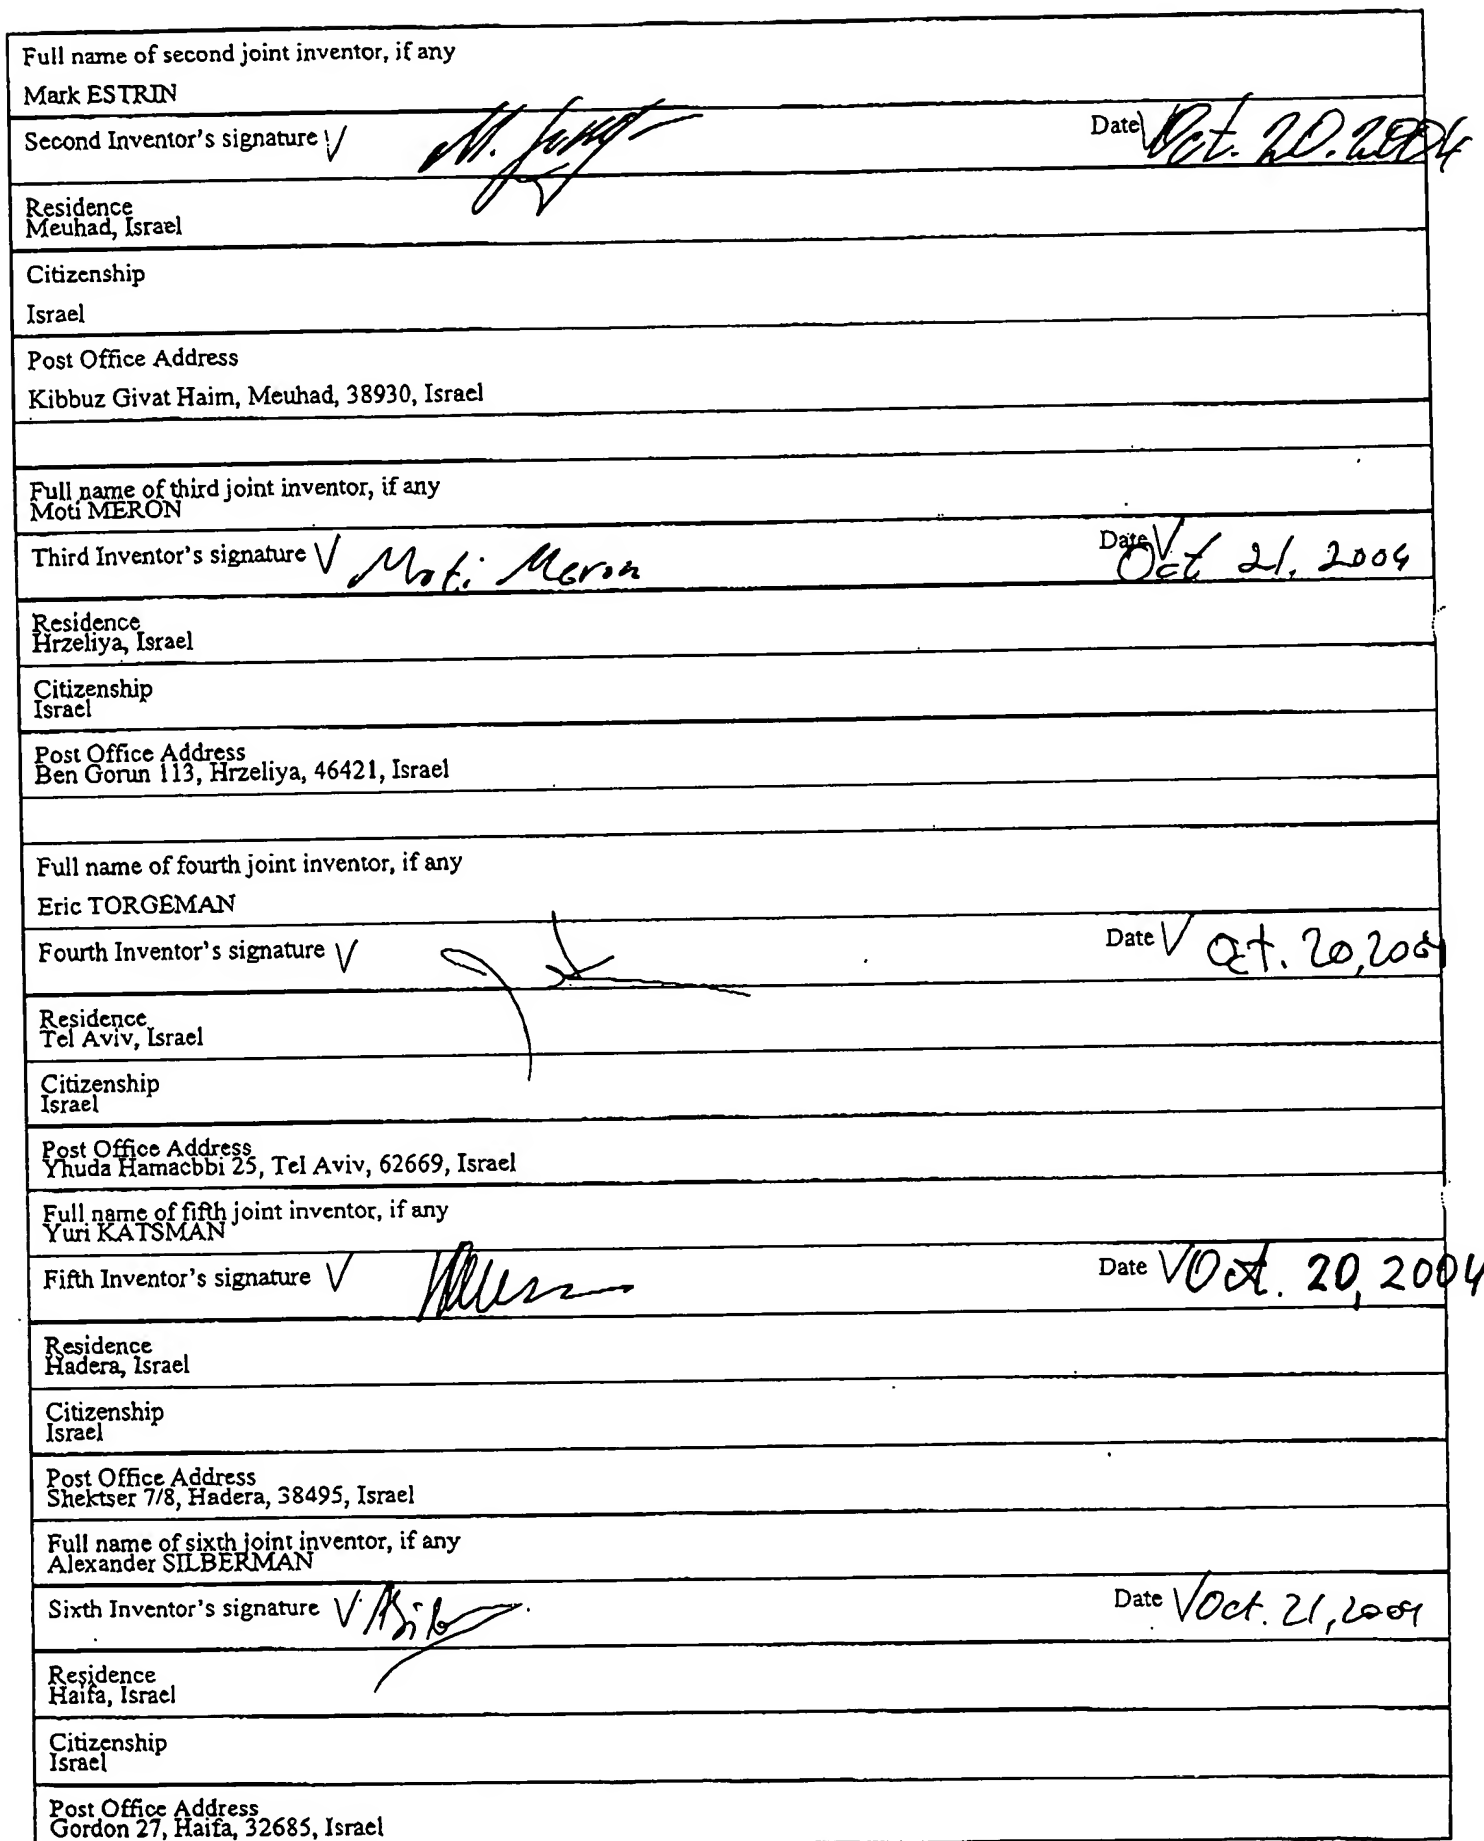 Full name of second joint inventor, if any
Mark ESTRIN
Second Inventor's signature Date Oct. 20. 2004
Residence
Meuhad, Israel
Citizenship
Israel
Post Office Address
Kibbuz Givat Haim, Meuhad, 38930, Israel
Full name of third joint inventor, if any
Moti MERON
Third Inventor's signature Moti Meron Date Oct 21, 2004
Residence
Hrzeliya, Israel
Citizenship
Israel
Post Office Address
Ben Gorun 113, Hrzeliya, 46421, Israel
Full name of fourth joint inventor, if any
Eric TORGEMAN
Fourth Inventor's signature Date Oct. 20, 2004
Residence
Tel Aviv, Israel
Citizenship
Israel
Post Office Address
Yhuda Hamacbbi 25, Tel Aviv, 62669, Israel
Full name of fifth joint inventor, if any
Yuri KATSMAN
Fifth Inventor's signature Date Oct. 20, 2004
Residence
Hadera, Israel
Citizenship
Israel
Post Office Address
Shektser 7/8, Hadera, 38495, Israel
Full name of sixth joint inventor, if any
Alexander SILBERMAN
Sixth Inventor's signature Date Oct. 21, 2004
Residence
Haifa, Israel
Citizenship
Israel
Post Office Address
Gordon 27, Haifa, 32685, Israel